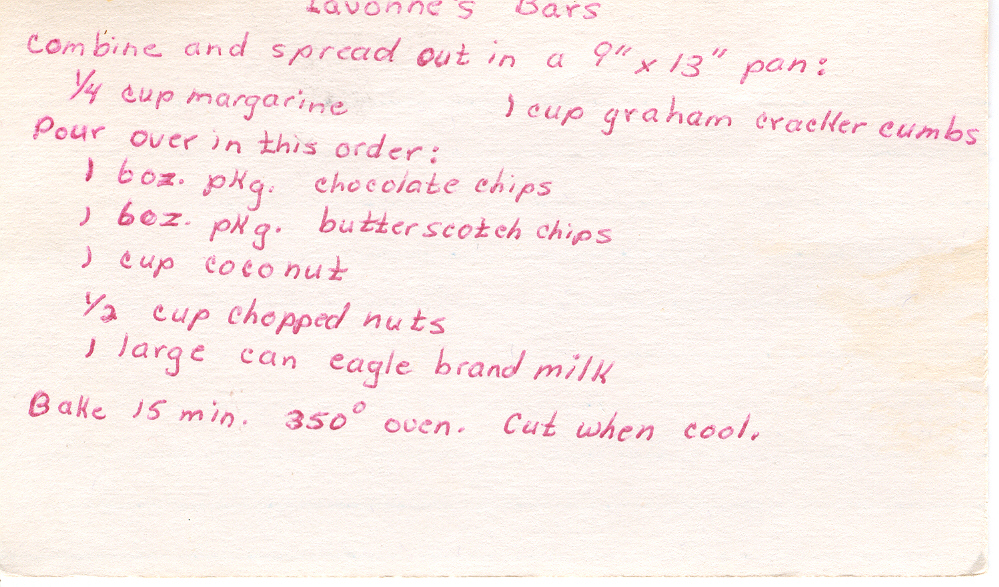 Lavonne's Bars
Combine and spread out in a 9" x 13" pan:
1/4 cup margarine 1 cup graham cracker cumbs
Pour over in this order:
1 6oz. pkg. chocolate chips
1 6oz. pkg. butterscotch chips
1 cup coconut
1/2 cup chopped nuts
1 large can eagle brand milk
Bake 15 min. 350° oven. Cut when cool.